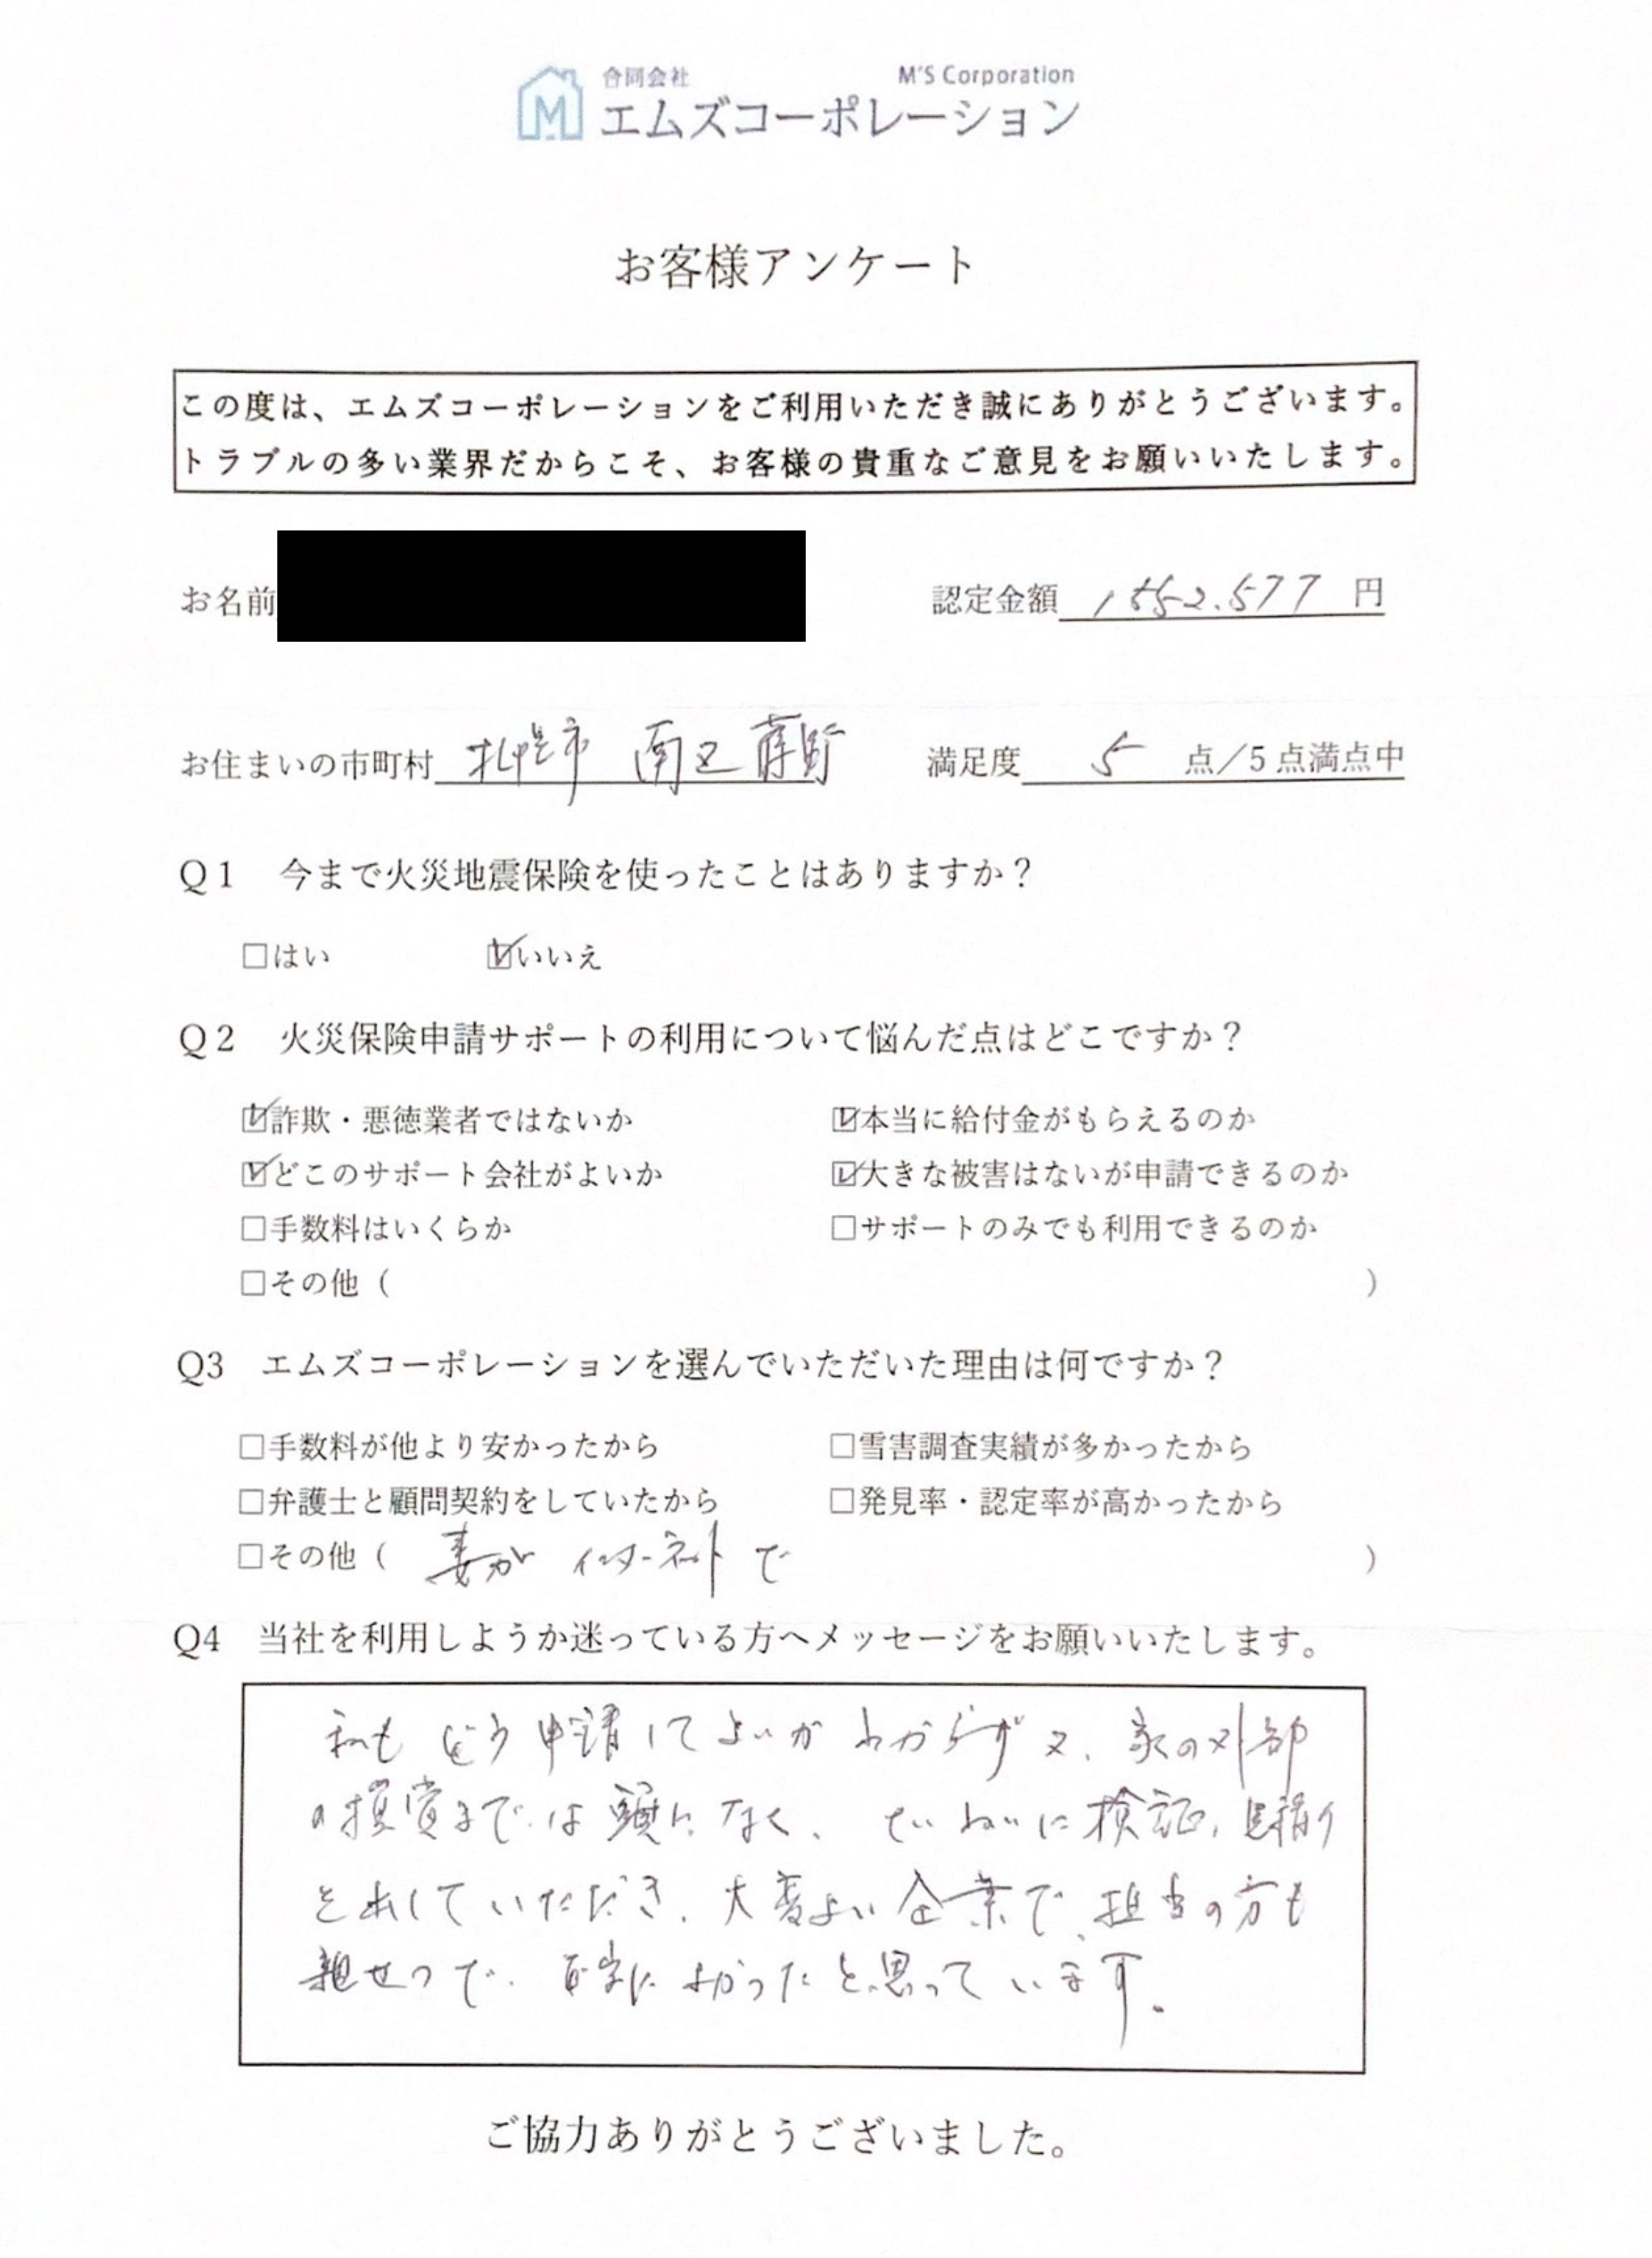 合同会社 M'S Corporation
エムズコーポレーション
お客様アンケート
この度は、エムズコーポレーションをご利用いただき誠にありがとうございます。
トラブルの多い業界だからこそ、お客様の貴重なご意見をお願いいたします。
お名前 認定金額 1552.577 円
お住まいの市町村 札幌市 南区 満足度 5 点/5点満点中
Q1 今まで火災地震保険を使ったことはありますか?
□はい ☑いいえ
Q2 火災保険申請サポートの利用について悩んだ点はどこですか?
☑詐欺・悪徳業者ではないか ☑本当に給付金がもらえるのか
☑どこのサポート会社がよいか ☑大きな被害はないが申請できるのか
□手数料はいくらか □サポートのみでも利用できるのか
□その他( )
Q3 エムズコーポレーションを選んでいただいた理由は何ですか?
□手数料が他より安かったから □雪害調査実績が多かったから
□弁護士と顧問契約をしていたから □発見率・認定率が高かったから
□その他( 妻が インターネット で )
Q4 当社を利用しようか迷っている方へメッセージをお願いいたします。
私も どう申請してよいか わからず 又、家の外部
の損賞までは頭になく、ていねいに検証、見積り
を出していただき、大変よい企業で、担当の方も
親せつで、 よかったと思っています。
ご協力ありがとうございました。